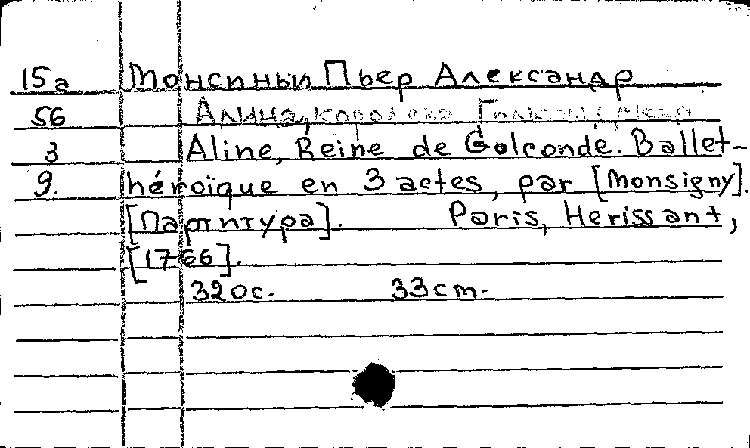 15а Монсиньи Пьер Александр
56 Алина, королева Голкондская
3 Aline, Reine de Golconde. Ballet-
9. héroïque en 3 actes, par [Monsigny].
[Партитура]. Paris, Herissant,
[1766].
320с. 33cm.